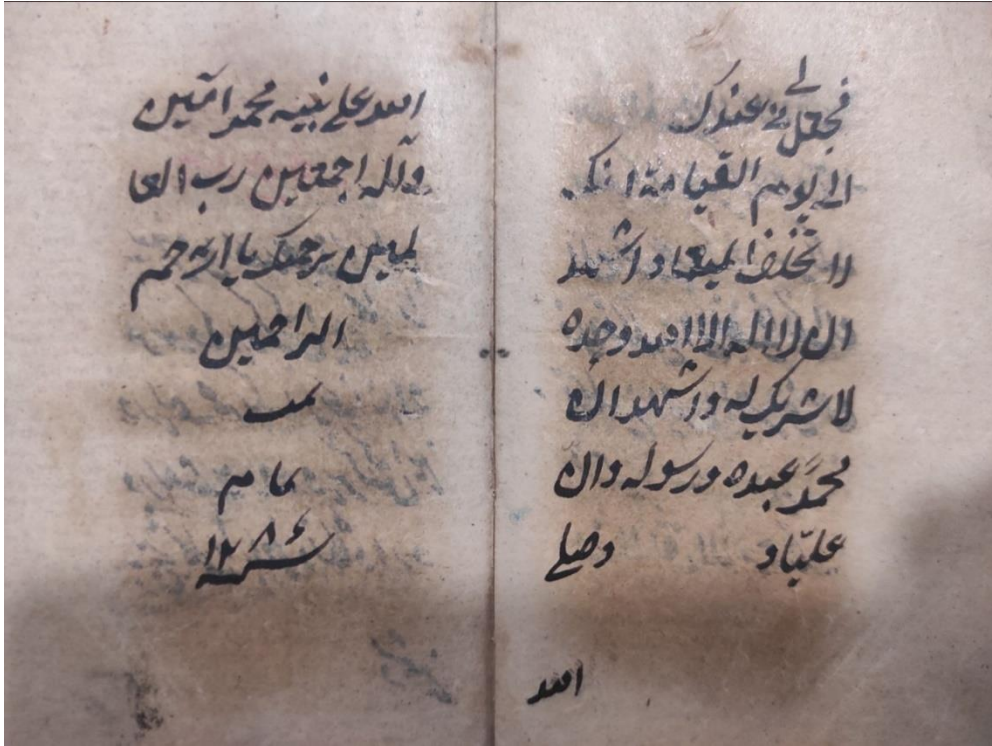 فجعل لي عندك
الی یوم القیامة انک
لا تخلف المیعاد و اشهد
ان لا اله الا الله وحده
لا شریک له و اشهد ان
محمّد عبده و رسوله و ان
علیّا و وصلی
الله
الله علی نبیه محمد امّین
و آله اجمعین رب العا
لمین برحمتک یا ارحم
الراحمین
تمت
تمام
سنه ۱۲۸۶